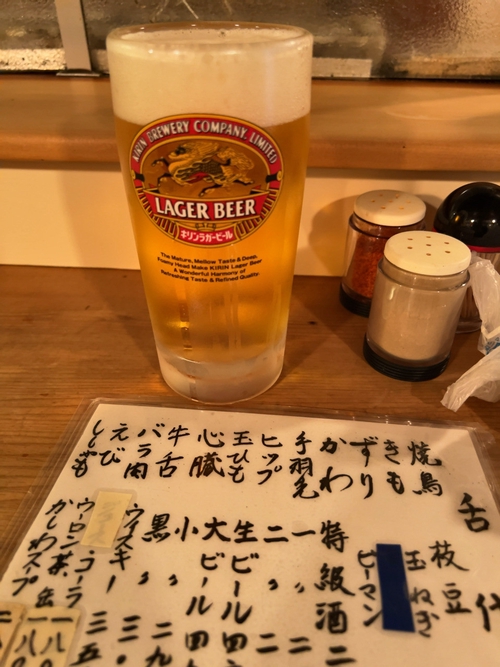 KIRIN BREWERY COMPANY, LIMITED
LAGER BEER
キリンラガービール
The Mature, Mellow Taste & Deep,
Foamy Head Make KIRIN Lager Beer
A Wonderful Harmony of
Refreshing Taste & Refined Quality.
舌
焼鳥
きも
ずり
かわ
手羽先
ヒップ
玉ひも
心臓
牛舌
バラ肉
えび
しも
枝豆
玉ねぎ
ピーマン
特級酒 二
一
二
生ビール 四
大ビール 四
小
黒
ウイスキー 三
コーラ
ウーロン茶
かしわスープ